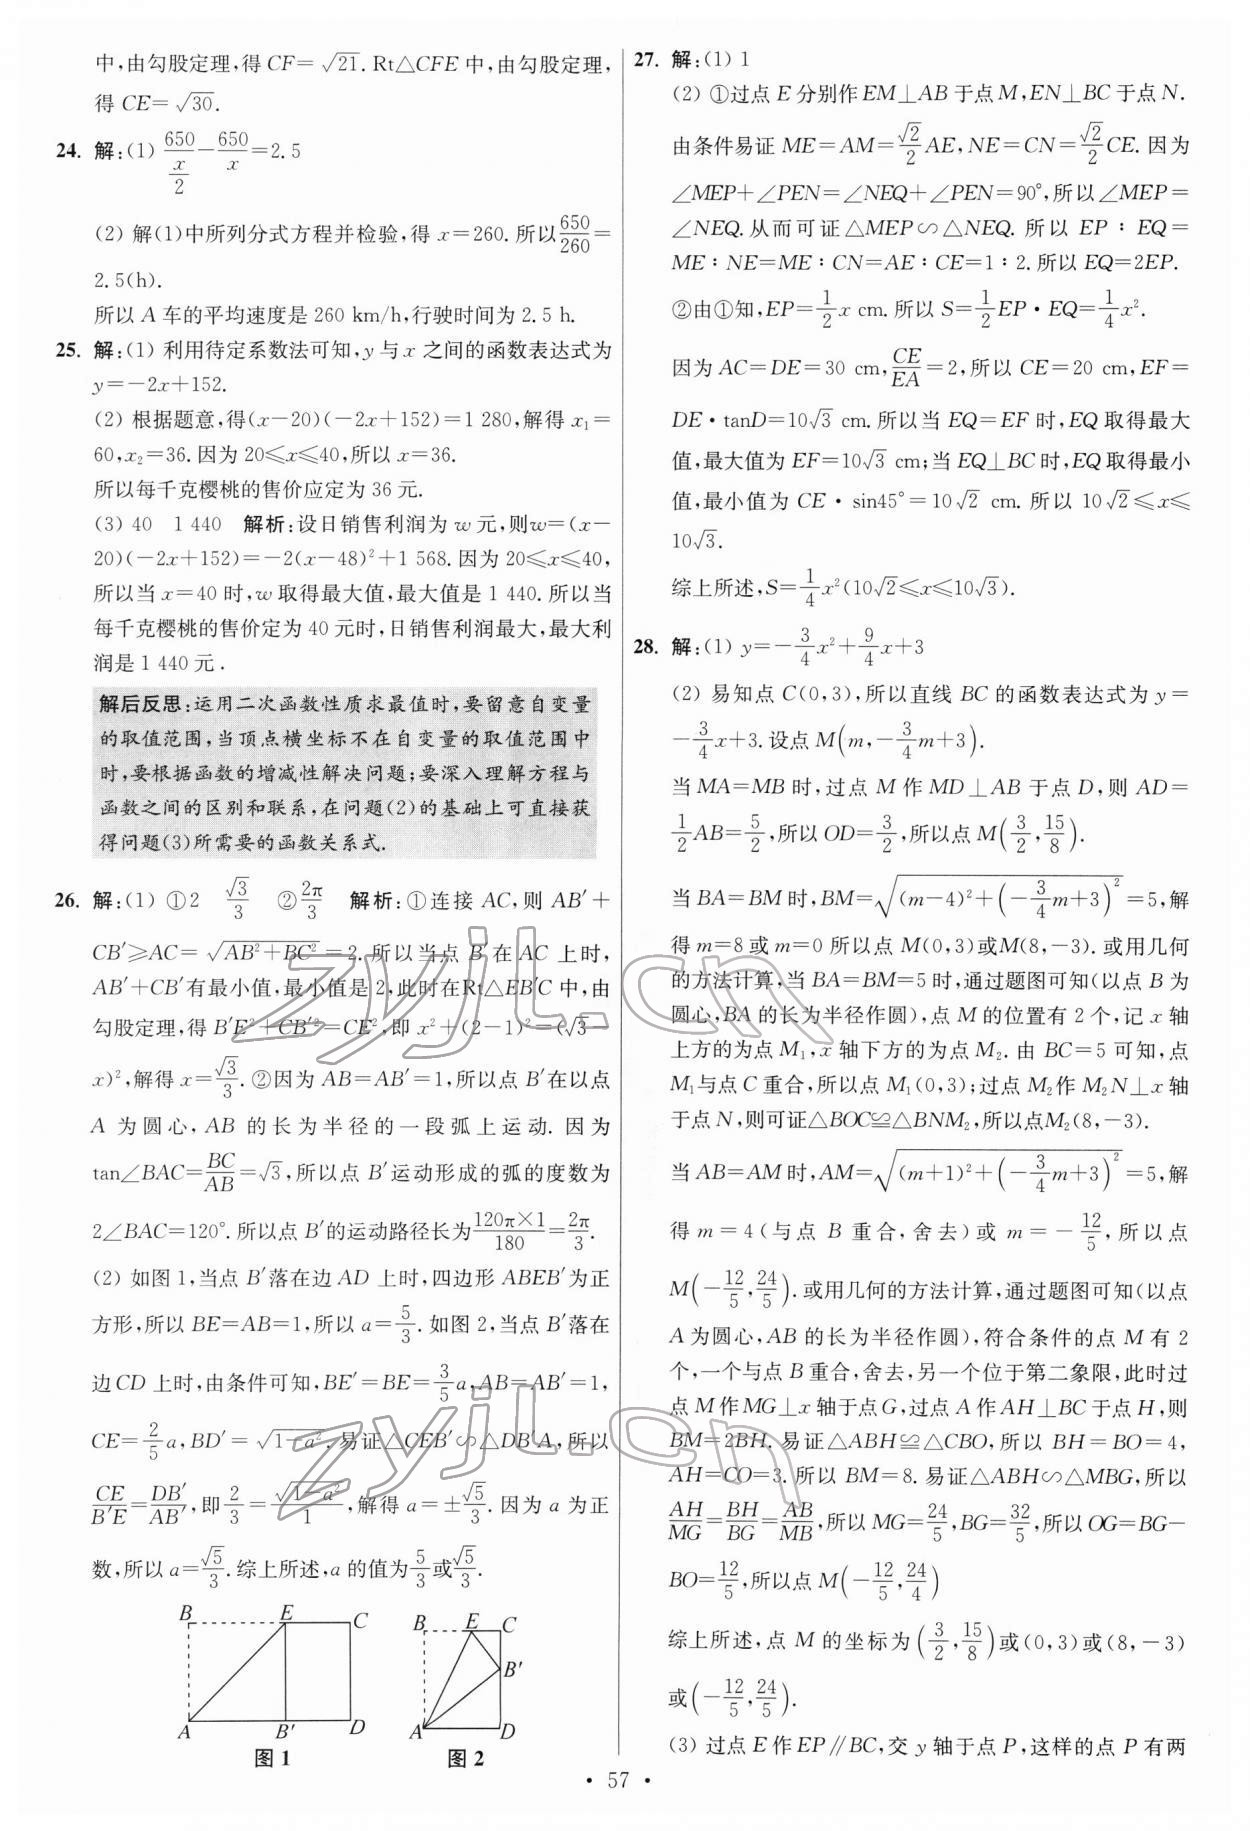 中,由勾股定理,得 CF=√21. Rt△CFE 中,由勾股定理,
得 CE=√30.
24. 解:(1) 650/(x/2)-650/x=2.5
(2) 解(1)中所列分式方程并检验,得 x=260. 所以650/260=
2.5(h).
所以 A 车的平均速度是 260 km/h,行驶时间为 2.5 h.
25. 解:(1) 利用待定系数法可知,y 与 x 之间的函数表达式为
y=-2x+152.
(2) 根据题意,得(x-20)(-2x+152)=1 280,解得 x₁=
60,x₂=36. 因为 20≤x≤40,所以 x=36.
所以每千克樱桃的售价应定为 36 元.
(3) 40 1 440 解析:设日销售利润为 w 元,则w=(x-
20)(-2x+152)=-2(x-48)²+1 568. 因为 20≤x≤40,
所以当 x=40 时,w 取得最大值,最大值是 1 440. 所以当
每千克樱桃的售价定为 40 元时,日销售利润最大,最大利
润是 1 440 元.
解后反思:运用二次函数性质求最值时,要留意自变量
的取值范围,当顶点横坐标不在自变量的取值范围中
时,要根据函数的增减性解决问题;要深入理解方程与
函数之间的区别和联系,在问题(2)的基础上可直接获
得问题(3)所需要的函数关系式.
26. 解:(1) ①2 √3/3 ②2π/3 解析:①连接 AC,则 AB′+
CB′≥AC=√(AB²+BC²)=2. 所以当点 B′在 AC 上时,
AB′+CB′有最小值,最小值是 2,此时在Rt△EB′C 中,由
勾股定理,得 B′E²+CB′²=CE²,即 x²+(2-1)²=(√3-
x)²,解得 x=√3/3. ②因为 AB=AB′=1,所以点 B′在以点
A 为圆心,AB 的长为半径的一段弧上运动. 因为
tan∠BAC=BC/AB=√3,所以点 B′运动形成的弧的度数为
2∠BAC=120°. 所以点 B′的运动路径长为120π×1/180=2π/3.
(2) 如图 1,当点 B′落在边 AD 上时,四边形 ABEB′为正
方形,所以 BE=AB=1,所以 a=5/3. 如图 2,当点 B′落在
边 CD 上时,由条件可知,BE′=BE=3/5a,AB=AB′=1,
CE=2/5a,BD′=√(1-a²). 易证△CEB′∽△DB′A,所以
CE/B′E=DB′/AB′,即2/3=√(1-a²)/1,解得 a=±√5/3. 因为 a 为正
数,所以 a=√5/3. 综上所述,a 的值为5/3或√5/3.
B E C
A B′ D
图 1
B E C
B′
A D
图 2
27. 解:(1) 1
(2) ①过点 E 分别作 EM⊥AB 于点 M,EN⊥BC 于点 N.
由条件易证 ME=AM=√2/2AE,NE=CN=√2/2CE. 因为
∠MEP+∠PEN=∠NEQ+∠PEN=90°,所以∠MEP=
∠NEQ. 从而可证△MEP∽△NEQ. 所以 EP∶EQ=
ME∶NE=ME∶CN=AE∶CE=1∶2. 所以 EQ=2EP.
②由①知,EP=1/2x cm. 所以 S=1/2EP·EQ=1/4x².
因为 AC=DE=30 cm,CE/EA=2,所以 CE=20 cm,EF=
DE·tanD=10√3 cm. 所以当 EQ=EF 时,EQ 取得最大
值,最大值为 EF=10√3 cm;当 EQ⊥BC 时,EQ 取得最小
值,最小值为 CE·sin45°=10√2 cm. 所以 10√2≤x≤
10√3.
综上所述,S=1/4x²(10√2≤x≤10√3).
28. 解:(1) y=-3/4x²+9/4x+3
(2) 易知点 C(0,3),所以直线 BC 的函数表达式为 y=
-3/4x+3. 设点 M(m,-3/4m+3).
当 MA=MB 时,过点 M 作 MD⊥AB 于点 D,则 AD=
1/2AB=5/2,所以 OD=3/2,所以点 M(3/2,15/8).
当 BA=BM 时,BM=√((m-4)²+(-3/4m+3)²)=5,解
得 m=8 或 m=0 所以点 M(0,3)或M(8,-3). 或用几何
的方法计算,当 BA=BM=5 时,通过题图可知(以点 B 为
圆心,BA 的长为半径作圆),点 M 的位置有 2 个,记 x 轴
上方的为点 M₁,x 轴下方的为点 M₂. 由 BC=5 可知,点
M₁与点 C 重合,所以点 M₁(0,3);过点 M₂作 M₂N⊥x 轴
于点 N,则可证△BOC≌△BNM₂,所以点M₂(8,-3).
当 AB=AM 时,AM=√((m+1)²+(-3/4m+3)²)=5,解
得 m=4(与点 B 重合,舍去)或 m=-12/5,所以点
M(-12/5,24/5). 或用几何的方法计算,通过题图可知(以点
A 为圆心,AB 的长为半径作圆),符合条件的点 M 有 2
个,一个与点 B 重合,舍去,另一个位于第二象限,此时过
点 M 作 MG⊥x 轴于点 G,过点 A 作 AH⊥BC 于点 H,则
BM=2BH. 易证△ABH≌△CBO,所以 BH=BO=4,
AH=CO=3. 所以 BM=8. 易证△ABH∽△MBG,所以
AH/MG=BH/BG=AB/MB,所以 MG=24/5,BG=32/5,所以 OG=BG-
BO=12/5,所以点 M(-12/5,24/4)
综上所述,点 M 的坐标为(3/2,15/8)或(0,3)或(8,-3)
或(-12/5,24/5).
(3) 过点 E 作 EP∥BC,交 y 轴于点 P,这样的点 P 有两
· 57 ·
zyjl.cn
zyjl.cn